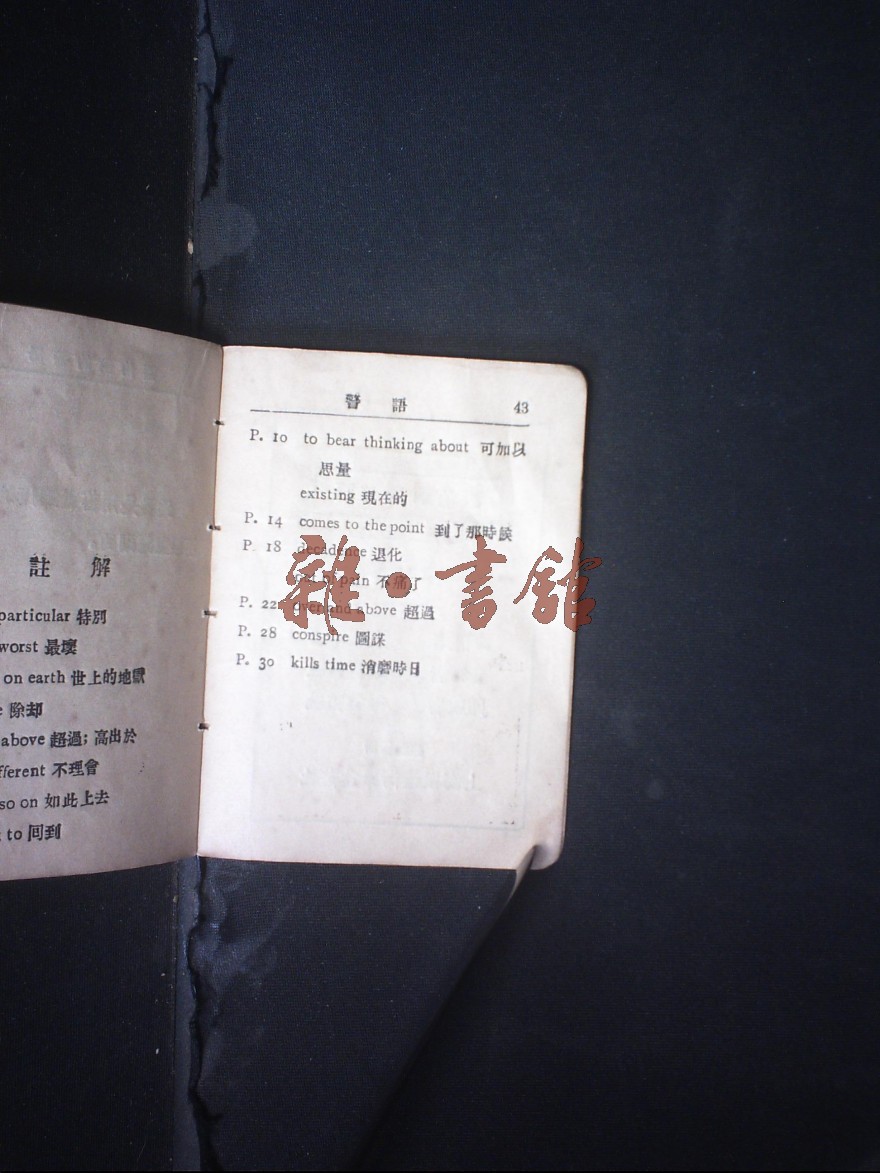 註 解
particular 特別
worst 最壞
on earth 世上的地獄
除却
above 超過; 高出於
fferent 不理會
so on 如此上去
to 回到
警 語 43
P. 10 to bear thinking about 可加以
思量
existing 現在的
P. 14 comes to the point 到了那時候
P. 18 decadence 退化
of pain 不痛了
P. 22 over and above 超過
P. 28 conspire 圖謀
P. 30 kills time 消磨時日
雜·書館